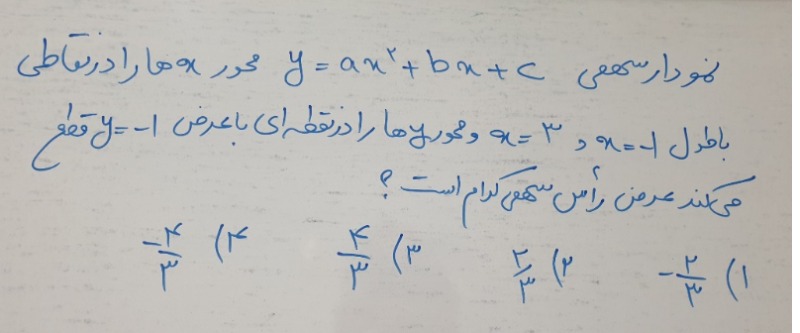 نمودار سهمی y = ax² + bx + c محور xها را در نقاطی
با طول x=-۱ و x=۳ و محور yها را در نقطه‌ای با عرض y=-۱ قطع
می‌کند عرض رأس سهمی کدام است؟
۱) -۲/۳ ۲) ۲/۳ ۳) ۴/۳ ۴) -۴/۳